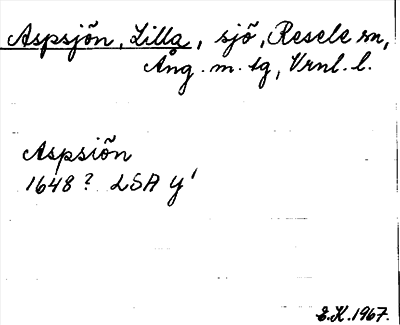 Aspsjön, Lilla, sjö, Resele sn,
Ång. m. tg, Vrnl. l.
Aspsiön
1648? LSA Y¹
E.K. 1967.